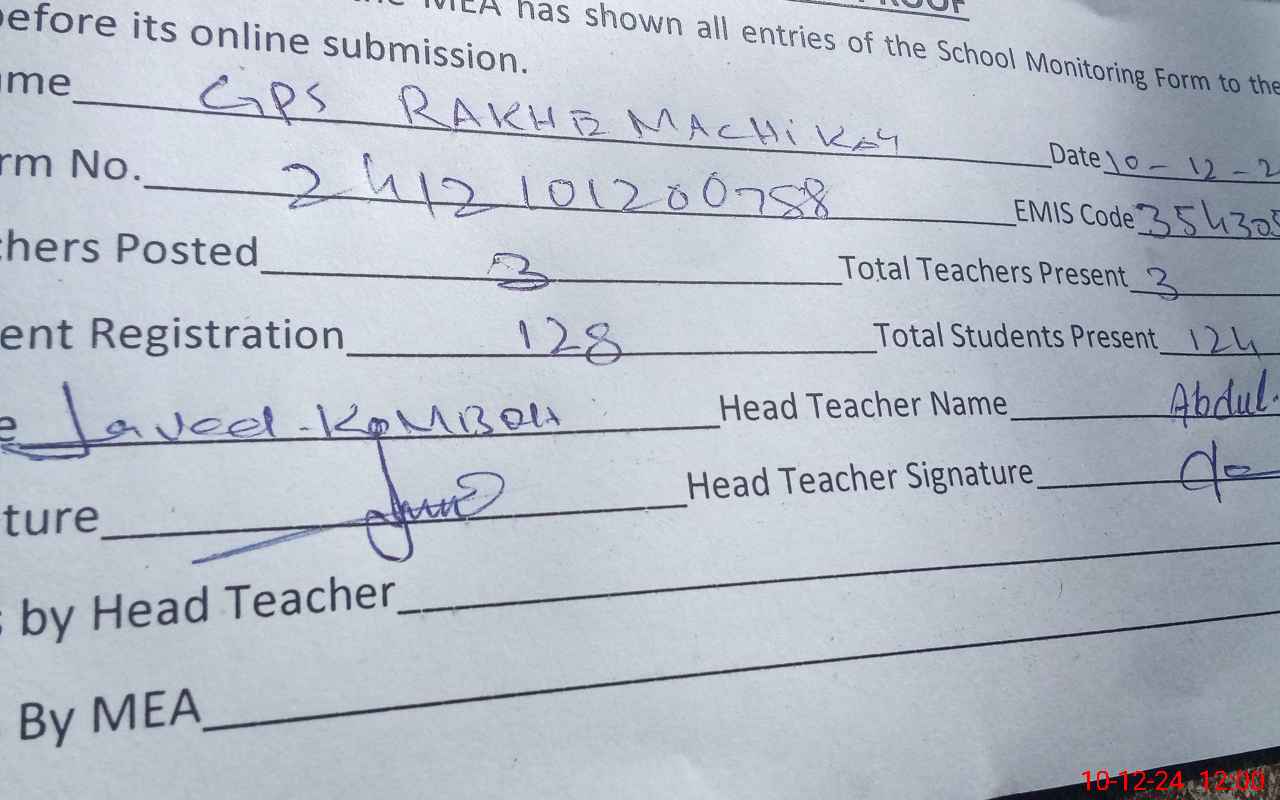 PROOF
the MEA has shown all entries of the School Monitoring Form to the
before its online submission.
ame GPS RAKHE MACHiKAY Date 10-12-2
rm No. 2412101200758 EMIS Code 354305
chers Posted 3 Total Teachers Present 3
ent Registration 128 Total Students Present 124
e Javeed-KOMBOH Head Teacher Name Abdul.
ture Head Teacher Signature
s by Head Teacher
By MEA
10-12-24 12:00